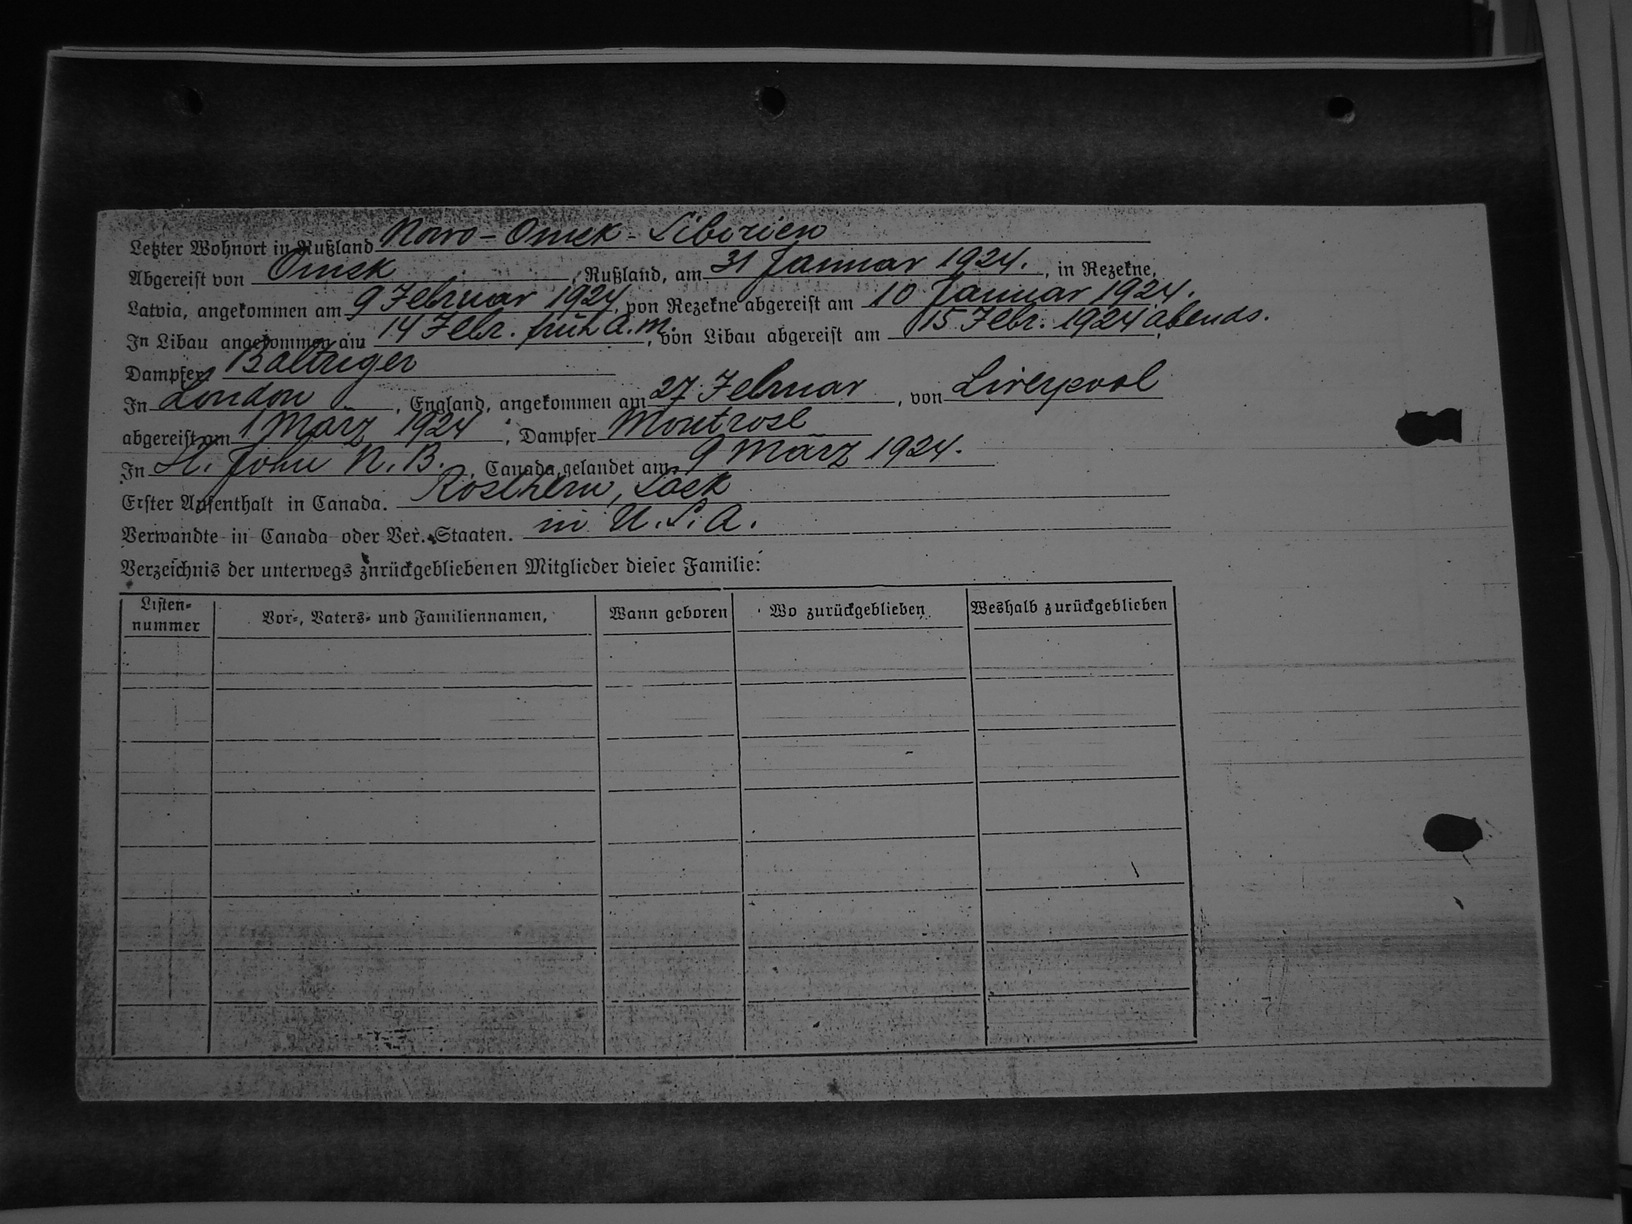 Letzter Wohnort in Rußland Novo-Omsk-Sibirien
Abgereist von Omsk, Rußland, am 31 Januar 1924., in Rezekne,
Latvia, angekommen am 9 Februar 1924, von Rezekne abgereist am 10 Januar 1924.
In Libau angekommen am 14 Febr. früh a.m., von Libau abgereist am 15 Febr. 1924 abends.
Dampfer Baltriger
In London, England, angekommen am 27 Februar, von Liverpool
abgereist am 1 März 1924, Dampfer Montrose
In St. John N.B., Canada, gelandet am 9 März 1924.
Erster Aufenthalt in Canada. Rosthern, Sask
Verwandte in Canada oder Ver. Staaten. in U.S.A.
Verzeichnis der unterwegs znrückgebliebenen Mitglieder dieser Familie:
Listen-nummer Vor-, Vaters- und Familiennamen, Wann geboren Wo zurückgeblieben Weshalb zurückgeblieben